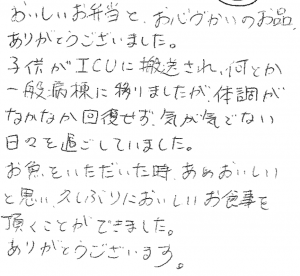 おいしいお弁当と、お心づかいのお品、
ありがとうございました。
子供がICUに搬送され、何とか
一般病棟に移りましたが、体調が
なかなか回復せず、気が気でない
日々を過ごしていました。
お魚をいただいた時、あぁおいしい
と思い、久しぶりにおいしいお食事を
頂くことができました。
ありがとうございます。